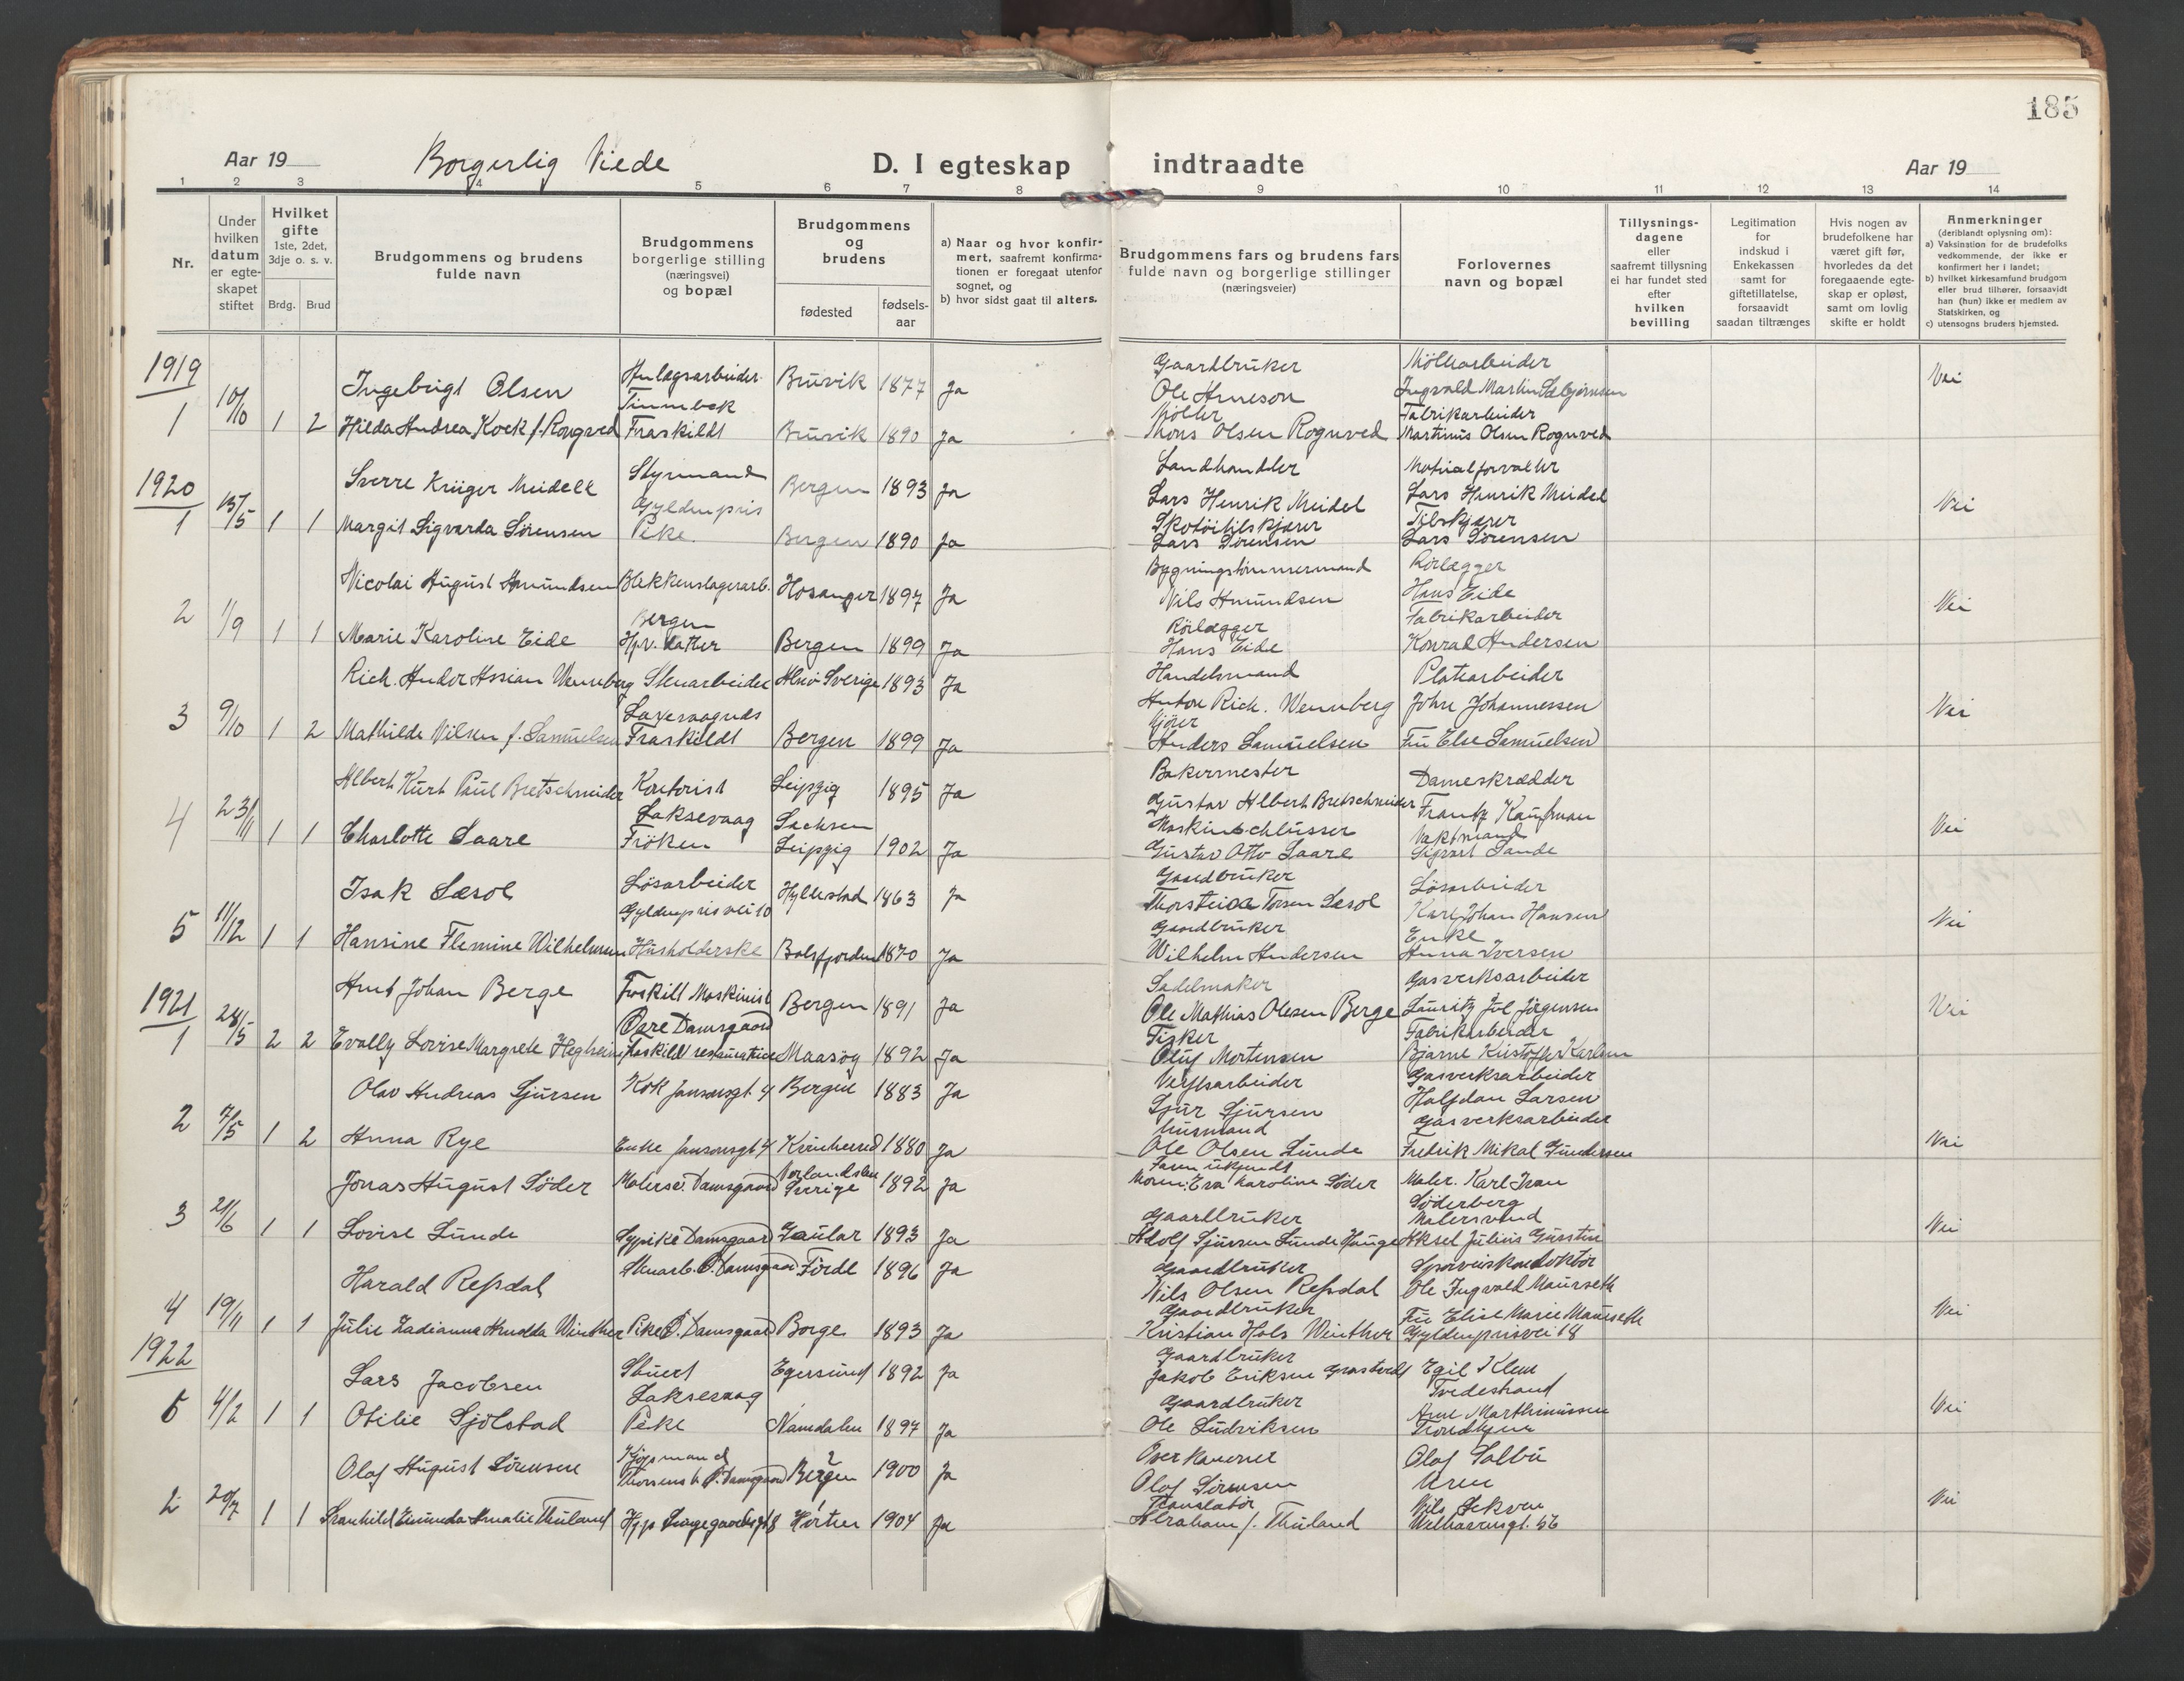 185
Aar 19
Borgerlig Viede
D. I egteskap indtraadte
Aar 19
1 2 3 4 5 6 7 8 9 10 11 12 13 14
Nr.
Under hvilken datum er egteskapet stiftet
Hvilket gifte
1ste, 2det, 3dje o. s. v.
Brdg. Brud
Brudgommens og brudens fulde navn
Brudgommens borgerlige stilling (næringsvei) og bopæl
Brudgommens og brudens
fødested
fødsels-aar
a) Naar og hvor konfirmert, saafremt konfirmationen er foregaat utenfor sognet, og
b) hvor sidst gaat til alters.
Brudgommens fars og brudens fars fulde navn og borgerlige stillinger (næringsveier)
Forlovernes navn og bopæl
Tillysningsdagene eller saafremt tillysning ei har fundet sted efter hvilken bevilling
Legitimation for indskud i Enkekassen samt for giftetillatelse, forsaavidt saadan tiltrænges
Hvis nogen av brudefolkene har været gift før, hvorledes da det foregaaende egteskap er opløst, samt om lovlig skifte er holdt
Anmerkninger
(deriblandt oplysning om):
a) Vaksination for de brudefolks vedkommende, der ikke er konfirmert her i landet;
b) hvilket kirkesamfund brudgom eller brud tilhører, forsaavidt han (hun) ikke er medlem av Statskirken, og
c) utensogns bruders hjemsted.
1919
1 10/10 1 2
Ingebrigt Olsen Anlægsarbeider Bruvik 1877 Ja Gaardbruker Ole Arneson
Ingvald Martin
Hilda Andrea Kock f. Rongved Fraskildt Bruvik 1890 Ja Mons Olsen Rognved Fabrikarbeider Martinus Olsen Rognved
Nei
1920
1 15/5 1 1
Sverre Krüger Meidell Styrmand Gyldenpris Bergen 1893 Ja Landhandler Lars Henrik Meidel
Materialforvalter Lars Henrik Meidel
Margit Sigvarda Sörensen Pike. Bergen 1890 Ja Skotöitilskjærer Lars Sörensen Tilskjærer Lars Sörensen
Nei
2 1/9 1 1
Nicolai August Amundsen Blikkenslagerarb. Bergen Hosanger 1897 Ja Bygningstömmermand Nils Amundsen
Rörlægger Hans Eide
Marie Karoline Eide Hjv. datter Bergen 1899 Ja Rörlægger Hans Eide Fabrikarbeider Konrad Andersen
Nei
3 9/10 1 2
Rich. Ander Assian Wennberg Stenarbeider Laxevaagnds Alnö Sverige 1893 Ja Handelsmand Anton Rich. Wennberg
Platearbeider John Johannessen
Mathilde Nilsen f. Samuelsen Fraskildt Bergen 1899 Ja Anders Samuelsen Fru Else Samuelsen
Nei
4 23/11 1 1
Albert Kurt Paul Bretschneider Kontorist Laksevaag Leipzig Sachsen 1895 Ja Bakermester Gustav Albert Bretschneider
Dameskrædder Frantz Kaufman
Charlotte Saare Fröken Leipzig 1902 Ja Maskinschlüsser Gustav Otto Saare Vaktmand Sigvart Sande
Nei
5 11/12 1 1
Isak Læsol Lösarbeider Gyldenprisvei 10 Hyllestad 1863 Ja Gaardbruker Læsol
Lösarbeider Karl Johan Hansen
Hansine Flemine Wilhelmsen Husholderske Balsfjorden 1870 Ja Gaardbruker Wilhelm Andersen Enke Anna Iversen
Nei
1921
1 28/5 2 2
Arnt Johan Berge Fraskilt Maskinist Övre Damsgaard Bergen 1891 Ja Sadelmaker Ole Mathias Olesen Berge
Gasverksarbeider Lauritz Jörgensen
Evally Lovise Margrete Fraskild Maasöy 1892 Ja Fisker Oluf Mortensen Fabrikarbeider Bjarne Kristoffer Karlsen
Nei
2 7/5 1 2
Olav Andreas Sjursen Kok Jansonsgt. 4 Bergen 1883 Ja Verftsarbeider Sjur Sjursen
Gasverksarbeider Halfdan Larsen
Anna Rye Enke Jansonsgt 4 Kvinherred 1880 Ja Husmand Ole Olsen Lunde Gasverksarbeider Fredrik Mikal Gundersen
Nei
3 21/6 1 1
Jonas August Söder Malersv. Damsgaard Sverige 1892 Ja Faren ukjendt Moren: Eva Karoline Söder
Maler. Karl Ivan Söderberg
Lovise Lunde Sypike Damsgaard Gaular 1893 Ja Gaardbruker Adolf Sjursen Lunde Hauge Malersvend Aksel Julius
Nei
4 19/11 1 1
Harald Refsdal Stenarb. Ö. Damsgaard Förde 1896 Ja Gaardbruker Nils Olsen Refsdal
Sporveiskonduktör Ole Ingvald Maurseth
Julie Ladianna Arnolda Winther Pike Ö. Damsgaard Borge 1893 Ja Gaardbruker Kristian Hals Winther Fru Elise Marie Maurseth Gyldenprisvei 18
Nei
1922
4/2 1 1
Lars Jacobsen Stuert Laksevaag Egersund 1892 Ja Gaardbruker Jakob Eriksen
Egil Klem Tvedestrand
Otilie Sjölstad Pike Namdalen 1897 Ja Gaardbruker Ole Ludviksen Arne Marthinussen Trondhjem
Nei
2 20/7 1 1
Olaf August Sörensen Kjöpmand Ö. Damsgaard Bergen 1900 Ja Olaf Sörensen
Olaf Salbu
Amalie Thuland Horten 1904 Ja Translatör Abraham f. Thuland Nils Welhavensgt. 56
Nei